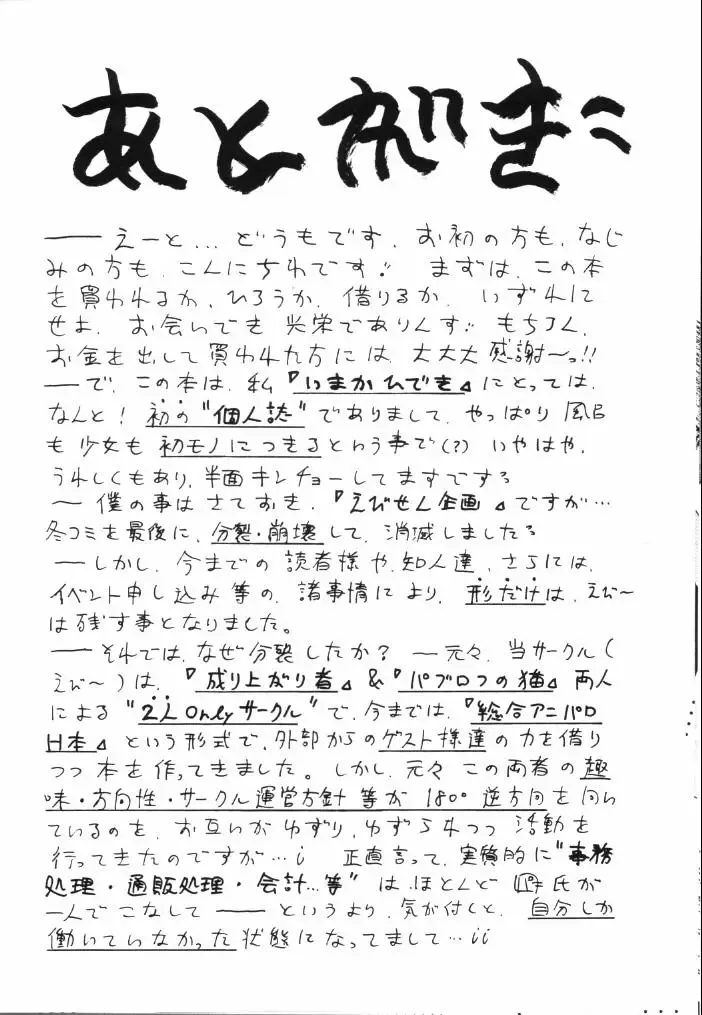 あとがき
── えーと… どうもです. お初の方も, なじ
みの方も, こんにちわです!! まずは, この本
を買われるか, ひろうか, 借りるか. いずれに
せよ, お会いでき 光栄でありんす!! もちろん,
お金を出して買われた方には 大大大感謝〜っ!!
─で, この本は, 私『いまかひでき』にとっては,
なんと! 初の"個人誌"でありまして, やっぱり 風呂
も 少女も 初モノにつきるという事で(?) いやはや,
うれしくもあり, 半面キンチョーしてますです。
〜 僕の事はさておき,『えびせん企画』ですが…
冬コミを最後に, 分裂・崩壊して, 消滅しました。
─しかし, 今までの 読者様や, 知人達, さらには,
イベント申し込み等の, 諸事情により, 形だけは, えび〜
は残す事となりました。
── それでは, なぜ分裂したか? ─元々, 当サークル(
えび〜)は,『成り上がり者』&『パブロフの猫』両人
による "2人Onlyサークル"で, 今までは,『総合アニパロ
H本』という形式で, 外部からのゲスト様達の力を借り
つつ 本を作ってきました。しかし, 元々 この両者の趣
味・方向性・サークル運営方針等が 180° 逆方向を向い
ているのを, お互いがゆずり, ゆずられつつ 活動を
行ってきたのですが…¡ 正直言って, 実質的に"事務
処理・通販処理・会計…等" は ほとんど 氏が
一人でこなして ── というより, 気が付くと, 自分しか
働いていなかった状態になってまして…¡¡